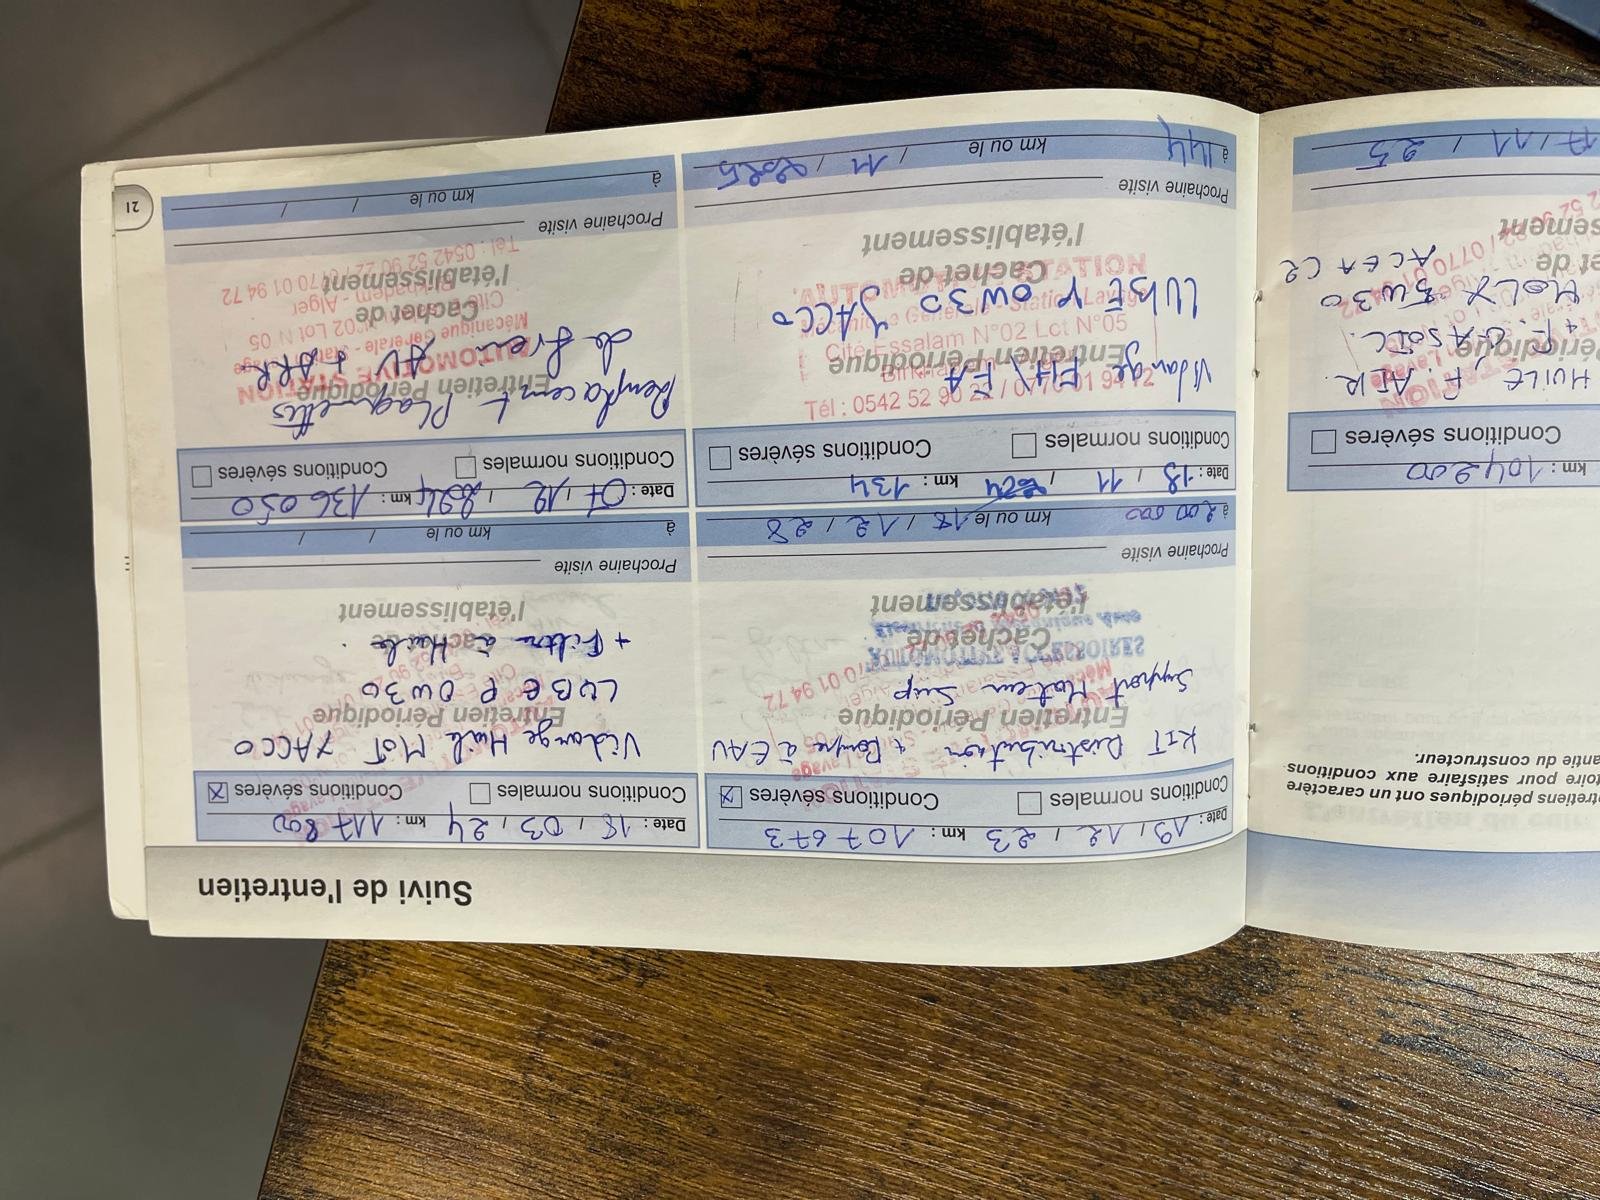 Suivi de l'entretien
Date : 19 / 12 / 23 km : 107 673
Conditions normales Conditions sévères X
KIT Distribution + Pompe à EAU
Entretien Périodique
Support Moteur Sup
Cachet de
l'établissement
AUTOMOTIVE ACCESSOIRES
Prochaine visite
à 200 000 km ou le 18 / 12 / 28
Date : 18 / 03 / 24 km : 117 800
Conditions normales Conditions sévères X
Vidange Huile MOT YACCO
Entretien Périodique
LUBE P 0W30
+ Filtre à Huile
Cachet de
l'établissement
Prochaine visite
à km ou le / /
Date : 18 / 11 / km : 134
Conditions normales Conditions sévères
Vidange FH \ FA
Entretien Périodique
LUBE P 0W30 YACCO
Cachet de
l'établissement
AUTOMOTIVE STATION
Mécanique Générale - Station Lavage
Cité Essalam N°02 Lct N°05
Tél : 0542 52 90 22 / 0770 01 94 72
Prochaine visite
à 144 km ou le / 11 / 2025
Date : 07 / 12 / 2024 km : 136 050
Conditions normales Conditions sévères
Remplacemt Plaquettes
Entretien Périodique
de frein AV + ARR
Cachet de
l'établissement
AUTOMOTIVE STATION
Mécanique Générale - Station Lavage
Cité N°02 Lot N 05
Birkhadem - Alger
Tél : 0542 52 90 22 / 0770 01 94 72
Prochaine visite
à km ou le / /
21
tretiens périodiques ont un caractère
toire pour satisfaire aux conditions
antie du constructeur.
km : 104 200
Conditions sévères
HUILE, F. AIR
Périodique
+ F. GASOIL
5W30
ACEA C2
et de
sement
17 / 11 / 25